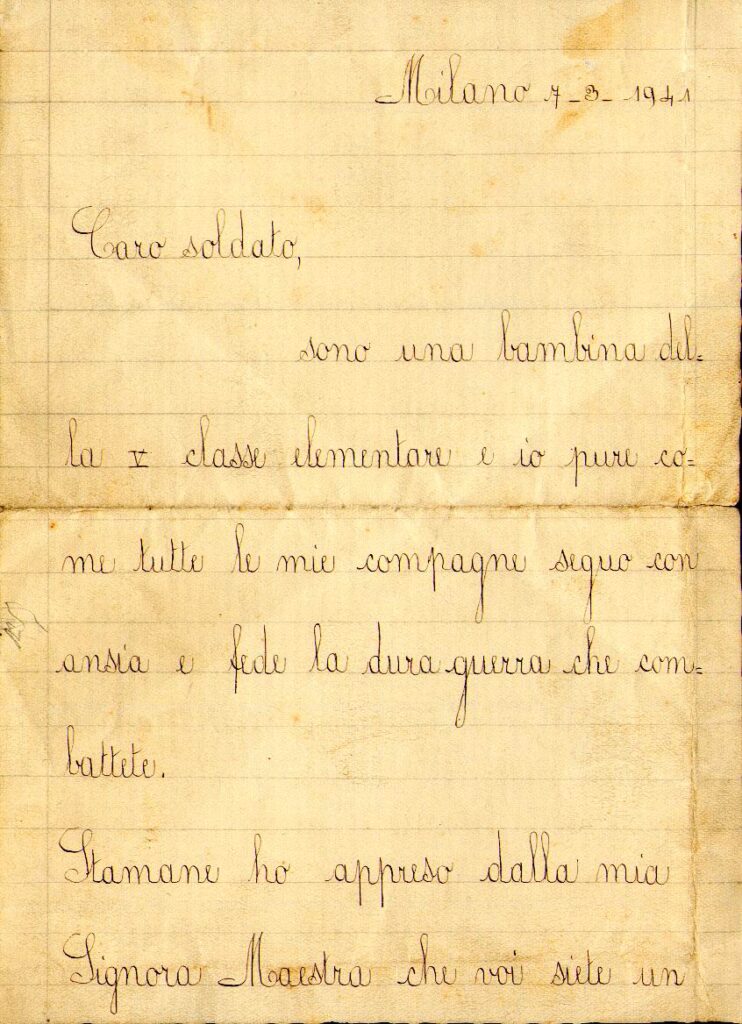 Milano 7-3-1941
Caro soldato,
sono una bambina del=
la V classe elementare e io pure co=
me tutte le mie compagne seguo con
ansia e fede la dura guerra che com=
battete.
Stamane ho appreso dalla mia
Signora Maestra che voi siete un